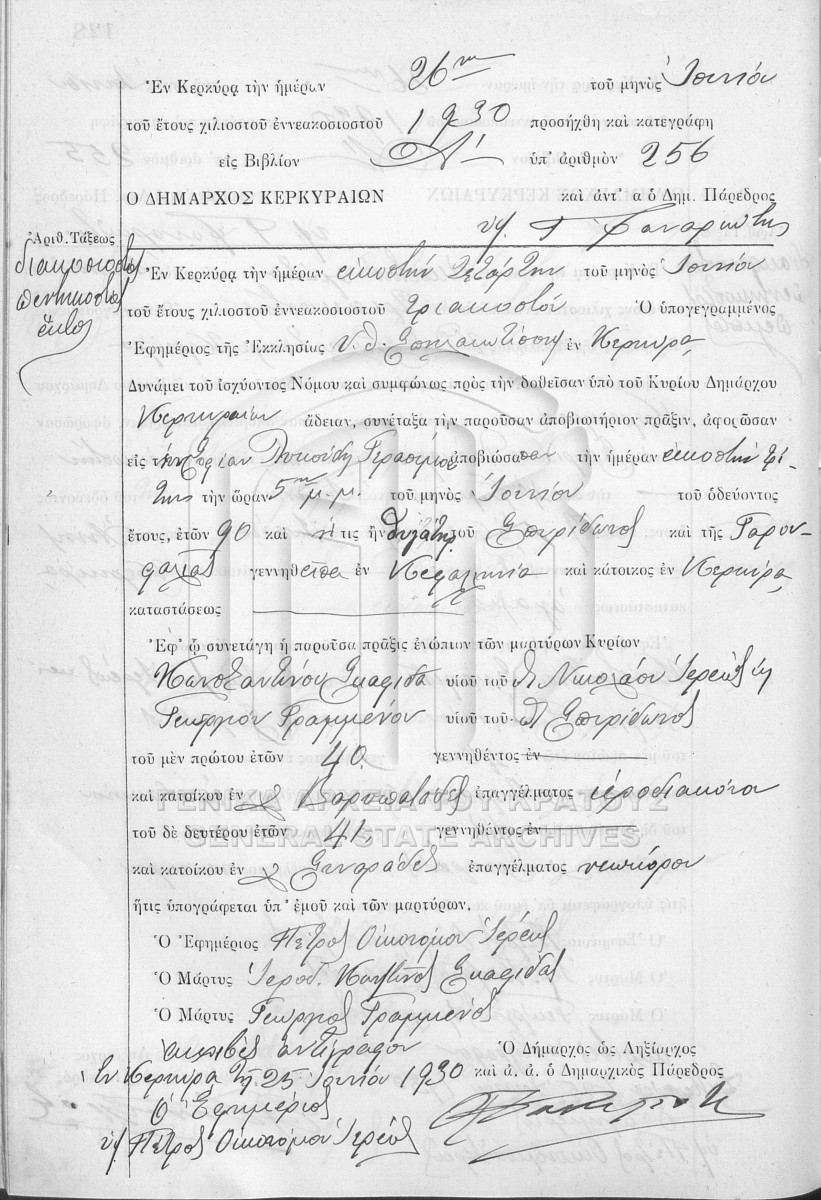 Ἐν Κερκύρᾳ τὴν ἡμέραν 26ην τοῦ μηνὸς Ἰουνίου
τοῦ ἔτους χιλιοστοῦ ἐννεακοσιοστοῦ 1930 προσήχθη καὶ κατεγράφη
εἰς Βιβλίον Α' ὑπ' ἀριθμὸν 256
Ο ΔΗΜΑΡΧΟΣ ΚΕΡΚΥΡΑΙΩΝ καὶ ἀντ' α ὁ Δημ. Πάρεδρος
Ἀριθ. Τάξεως
διακοσιοστὸς
πεντηκοστὸς
ἕκτος
Ἐν Κερκύρᾳ τὴν ἡμέραν εἰκοστὴν τετάρτην τοῦ μηνὸς Ἰουνίου
τοῦ ἔτους χιλιοστοῦ ἐννεακοσιοστοῦ τριακοστοῦ Ὁ ὑπογεγραμμένος
Ἐφημέριος τῆς Ἐκκλησίας Υ. Θ. Σπηλαιωτίσσης ἐν Κερκύρᾳ
Δυνάμει τοῦ ἰσχύοντος Νόμου καὶ συμφώνως πρὸς τὴν δοθεῖσαν ὑπὸ τοῦ Κυρίου Δημάρχου
Κερκυραίων ἄδειαν, συνέταξα τὴν παροῦσαν ἀποβιωτήριον πρᾶξιν, ἀφορῶσαν
εἰς τὴν Γερασίμου ἀποβιώσασαν τὴν ἡμέραν εἰκοστὴν τρί-
την τὴν ὥραν 5ην μ.μ. τοῦ μηνὸς Ἰουνίου τοῦ ὁδεύοντος
ἔτους, ἐτῶν 90 καὶ ἥτις ἦν θυγάτηρ τοῦ Σπυρίδωνος καὶ τῆς Γαρου-
φαλιᾶς γεννηθεῖσα ἐν Κεφαλληνίᾳ καὶ κάτοικος ἐν Κερκύρᾳ
καταστάσεως
Ἐφ' ᾧ συνετάγη ἡ παροῦσα πρᾶξις ἐνώπιον τῶν μαρτύρων Κυρίων
Κωνσταντίνου Σκαφιδᾶ υἱοῦ τοῦ Νικολάου Ἱερέως
Γεωργίου Γραμμένου υἱοῦ τοῦ Σπυρίδωνος
τοῦ μὲν πρώτου ἐτῶν 40. γεννηθέντος ἐν
καὶ κατοίκου ἐν Βαρυπατάδες ἐπαγγέλματος ἱεροδιακόνου
ΓΕΝΙΚΑ ΑΡΧΕΙΑ ΤΟΥ ΚΡΑΤΟΥΣ
τοῦ δὲ δευτέρου ἐτῶν 41, γεννηθέντος ἐν
GENERAL STATE ARCHIVES
καὶ κατοίκου ἐν Σιναράδες ἐπαγγέλματος νεωκόρου
ἥτις ὑπογράφεται ὑπ' ἐμοῦ καὶ τῶν μαρτύρων.
Ὁ Ἐφημέριος Πέτρος Οἰκονόμου Ἱερεύς
Ὁ Μάρτυς Ἱεροδ. Κων/τῖνος Σκαφιδᾶς
Ὁ Μάρτυς Γεώργιος Γραμμένος
ἀκριβὲς ἀντίγραφον Ὁ Δήμαρχος ὡς Ληξίαρχος
ἐν Κερκύρᾳ τῇ 25 Ἰουνίου 1930 καὶ ἀ. ἀ. ὁ Δημαρχικὸς Πάρεδρος
Ὁ Ἐφημέριος
υγ Πέτρος Οἰκονόμου Ἱερεύς